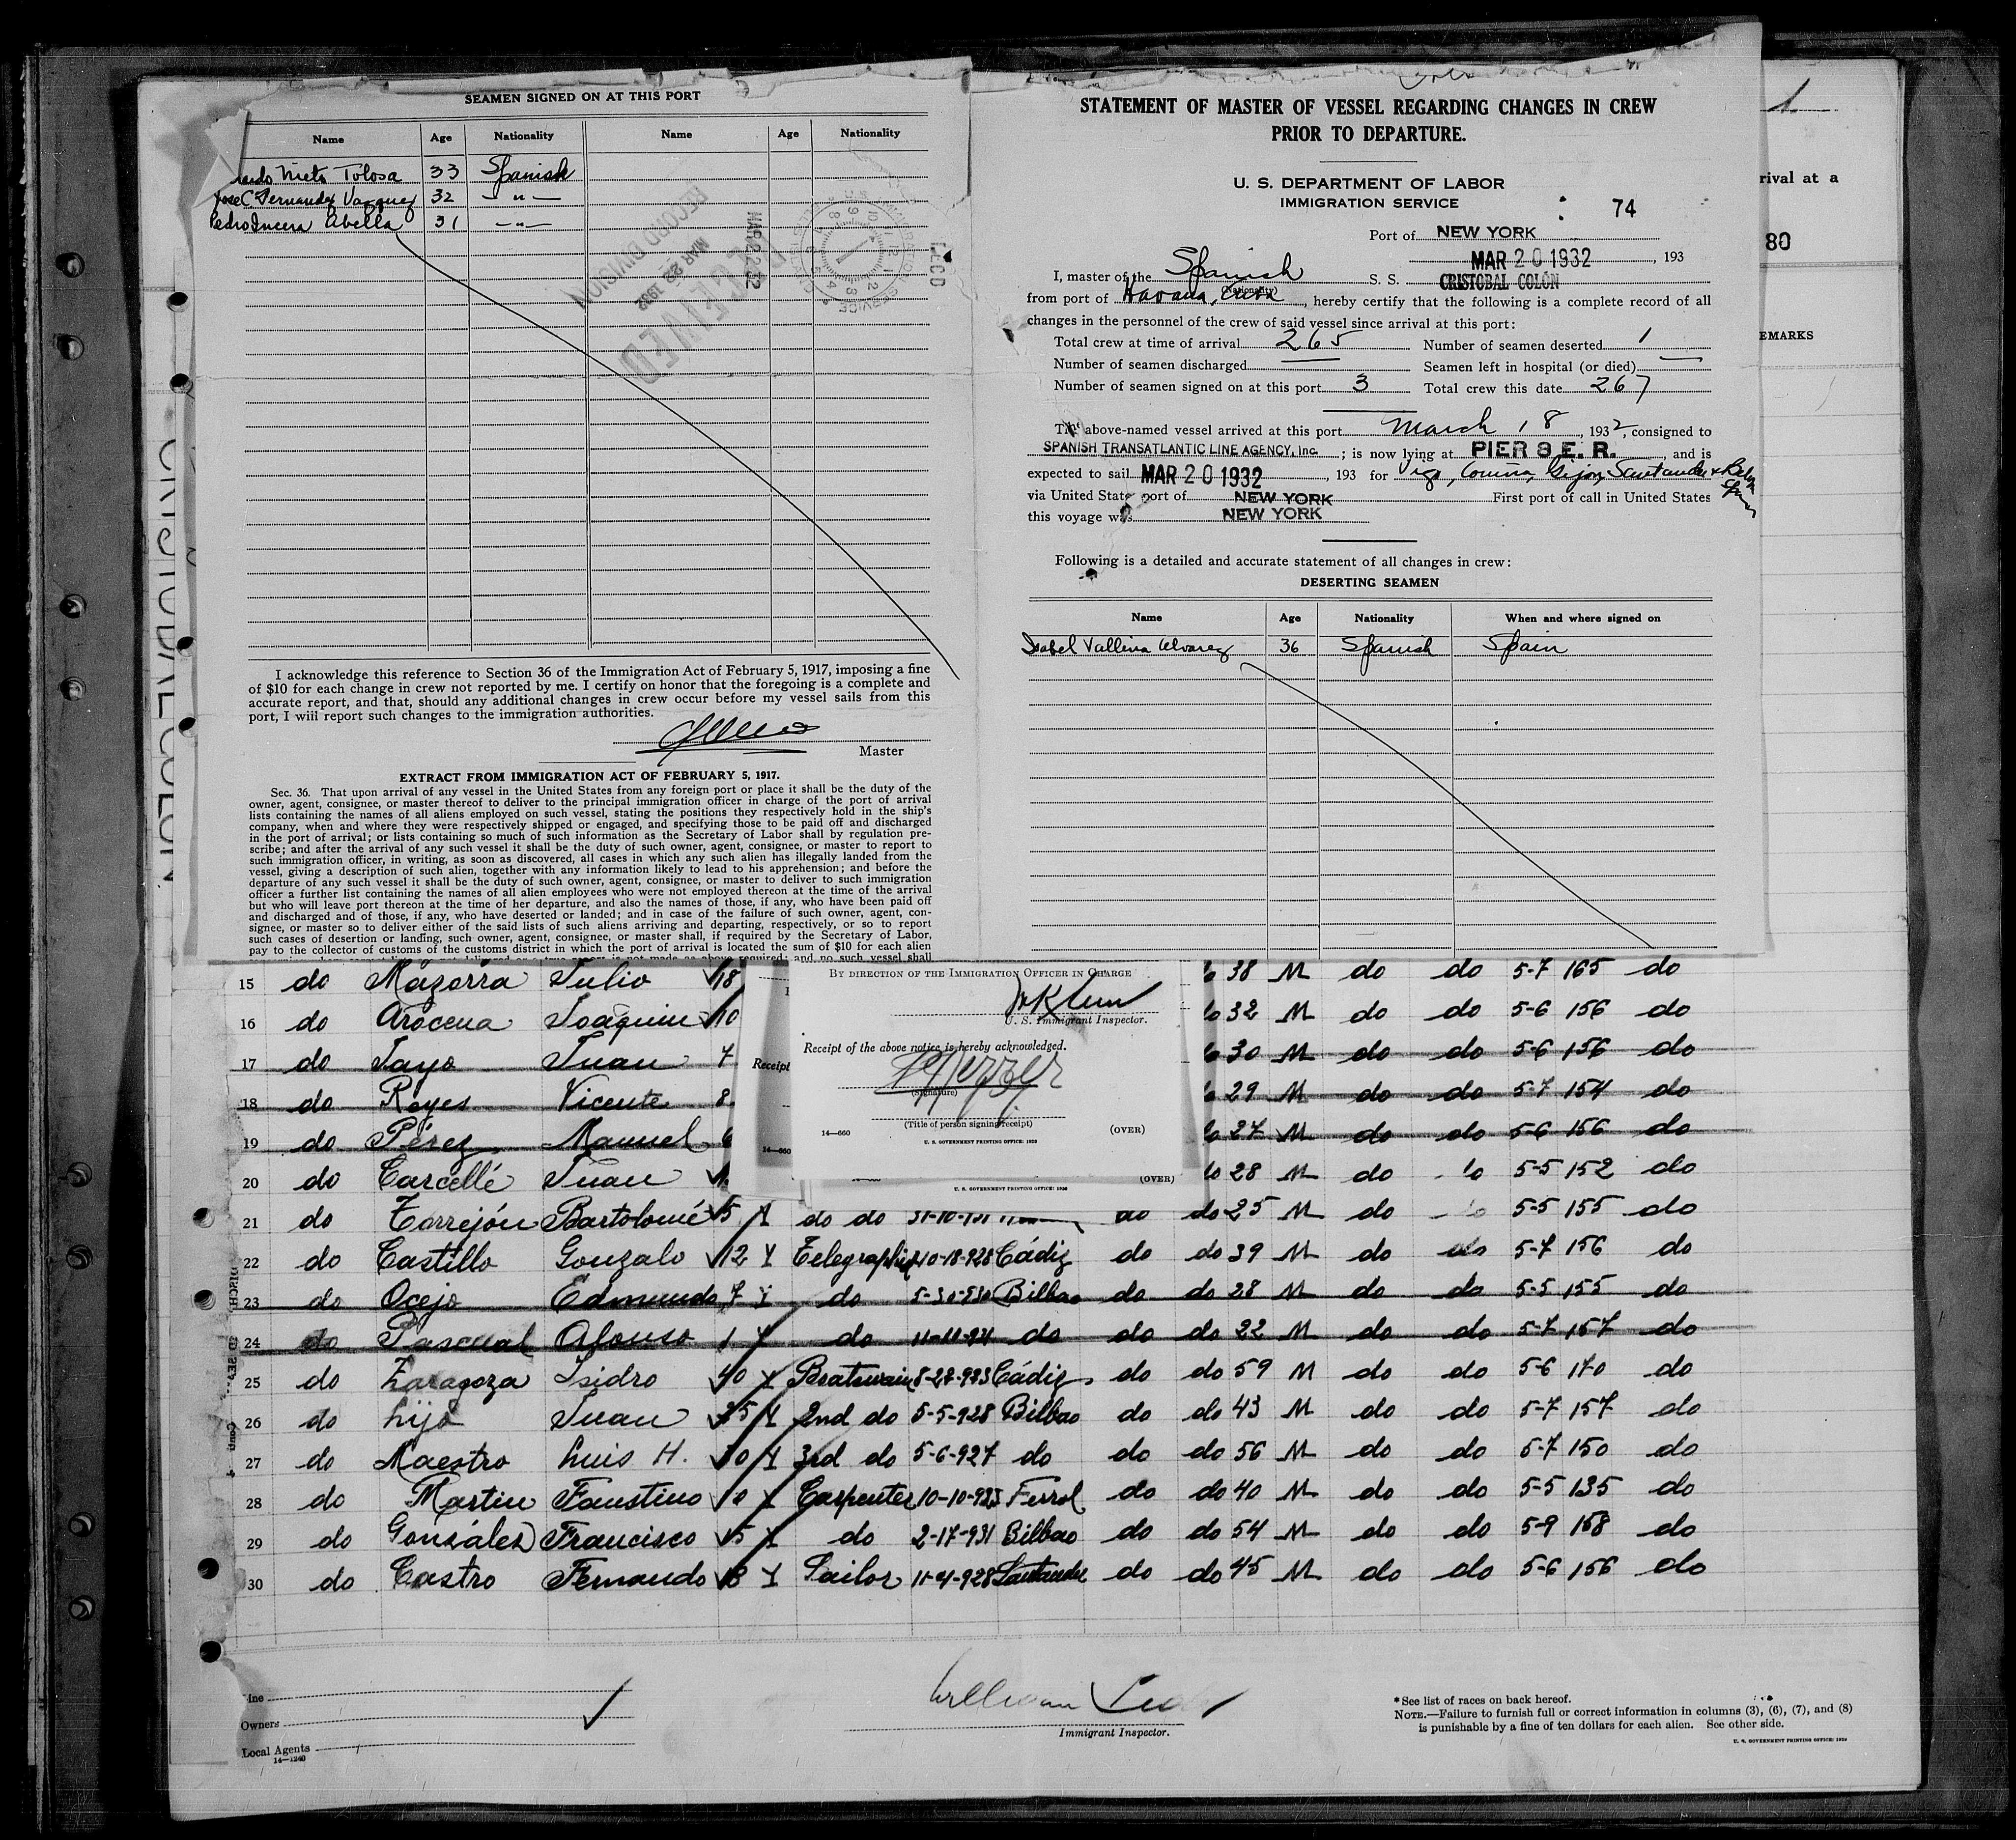 SEAMEN SIGNED ON AT THIS PORT
Name Age Nationality Name Age Nationality
Nieto Tolosa 33 Spanish
Jose C Fernandez Vazquez 32 — " —
Pedro Incera Abella 31 — " —
RECEIVED
MAR 22 1932
RECORD DIVISION
MAR 22 32
REC'D
I acknowledge this reference to Section 36 of the Immigration Act of February 5, 1917, imposing a fine
of $10 for each change in crew not reported by me. I certify on honor that the foregoing is a complete and
accurate report, and that, should any additional changes in crew occur before my vessel sails from this
port, I will report such changes to the immigration authorities.
Master
EXTRACT FROM IMMIGRATION ACT OF FEBRUARY 5, 1917.
Sec. 36. That upon arrival of any vessel in the United States from any foreign port or place it shall be the duty of the
owner, agent, consignee, or master thereof to deliver to the principal immigration officer in charge of the port of arrival
lists containing the names of all aliens employed on such vessel, stating the positions they respectively hold in the ship's
company, when and where they were respectively shipped or engaged, and specifying those to be paid off and discharged
in the port of arrival; or lists containing so much of such information as the Secretary of Labor shall by regulation pre-
scribe; and after the arrival of any such vessel it shall be the duty of such owner, agent, consignee, or master to report to
such immigration officer, in writing, as soon as discovered, all cases in which any such alien has illegally landed from the
vessel, giving a description of such alien, together with any information likely to lead to his apprehension; and before the
departure of any such vessel it shall be the duty of such owner, agent, consignee, or master to deliver to such immigration
officer a further list containing the names of all alien employees who were not employed thereon at the time of the arrival
but who will leave port thereon at the time of her departure, and also the names of those, if any, who have been paid off
and discharged and of those, if any, who have deserted or landed; and in case of the failure of such owner, agent, con-
signee, or master so to deliver either of the said lists of such aliens arriving and departing, respectively, or so to report
such cases of desertion or landing, such owner, agent, consignee, or master shall, if required by the Secretary of Labor,
pay to the collector of customs of the customs district in which the port of arrival is located the sum of $10 for each alien
required; and no such vessel shall
STATEMENT OF MASTER OF VESSEL REGARDING CHANGES IN CREW
PRIOR TO DEPARTURE.
U. S. DEPARTMENT OF LABOR
IMMIGRATION SERVICE
74
Port of NEW YORK
MAR 20 1932, 193
I, master of the Spanish S. S. CRISTOBAL COLON
(Nationality)
from port of Havana, Cuba, hereby certify that the following is a complete record of all
changes in the personnel of the crew of said vessel since arrival at this port:
Total crew at time of arrival 265 Number of seamen deserted 1
Number of seamen discharged — Seamen left in hospital (or died) —
Number of seamen signed on at this port 3 Total crew this date 267
The above-named vessel arrived at this port March 18, 1932, consigned to
SPANISH TRANSATLANTIC LINE AGENCY, Inc.; is now lying at PIER 8 E. R., and is
expected to sail MAR 20 1932, 193 for Vigo, Coruña, Gijon, Santander
via United States port of NEW YORK First port of call in United States
this voyage was NEW YORK
Following is a detailed and accurate statement of all changes in crew:
DESERTING SEAMEN
Name Age Nationality When and where signed on
Isabel Vallina Alvarez 36 Spanish Spain
1
rival at a
80
EMARKS
CRISTOBAL COLON
15 do Mazorra Julio 18 38 M do do 5-7 165 do
16 do Arocena Joaquin 10 32 M do do 5-6 156 do
17 do Tayo Juan 4 30 M do do 5-6 156 do
18 do Reyes Vicente 8 29 M do do 5-7 154 do
19 do Pérez Manuel 6 27 M do do 5-6 156 do
20 do Carcellé Juan 28 M do 5-5 152 do
21 do Torrejón Bartolomé 5 do do 31-10-931 do do 25 M do 5-5 155 do
22 do Castillo Gonzalo 12 Telegraphist 10-18-928 Cádiz do do 39 M do do 5-7 156 do
23 do Ocejo Edmundo 7 do 5-30-930 Bilbao do do 28 M do do 5-5 155 do
24 do Pascual Alonso 1 do 11-11-931 do do do 22 M do do 5-7 157 do
25 do Zaragoza Isidro 40 Boatswain 8-27-923 Cádiz do do 59 M do do 5-6 170 do
26 do Lijó Juan 25 2nd do 5-5-928 Bilbao do do 43 M do do 5-7 157 do
27 do Maestro Luis H. 30 3rd do 5-6-927 do do do 56 M do do 5-7 150 do
28 do Martin Faustino 10 Carpenter 10-10-925 Ferrol do do 40 M do do 5-5 135 do
29 do Gonsález Francisco 15 do 2-17-931 Bilbao do do 54 M do do 5-9 158 do
30 do Castro Fernando 18 Sailor 11-4-928 Santander do do 45 M do do 5-6 156 do
BY DIRECTION OF THE IMMIGRATION OFFICER IN CHARGE
U. S. Immigrant Inspector.
Receipt of the above notice is hereby acknowledged.
(Signature)
(Title of person signing receipt)
14—660
(OVER)
U. S. GOVERNMENT PRINTING OFFICE: 1928
Receipt
14—660
(OVER)
U. S. GOVERNMENT PRINTING OFFICE: 1930
Line
Owners
Local Agents
14—1240
William
Immigrant Inspector.
*See list of races on back hereof.
NOTE.—Failure to furnish full or correct information in columns (3), (6), (7), and (8)
is punishable by a fine of ten dollars for each alien. See other side.
U. S. GOVERNMENT PRINTING OFFICE: 1929